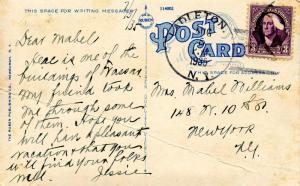 THIS SPACE FOR WRITING MESSAGES
Dear Mabel
Here is one of the
buildings of Vassar
My friend took
me through some
of them. Hope you
will have a pleasant
vacation & that you
will find your folks
well. Jessie
POST
CARD
THIS SPACE FOR ADDRESS ONLY
1935
N.Y.
3
Mrs. Mabel Williams
148 W. 10th St
New York
N.Y.